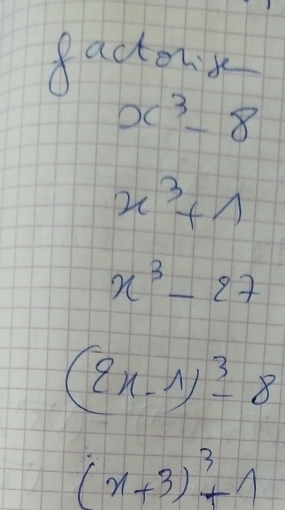 factorise
x³ - 8
x³ + 1
x³ - 27
(2x - 1)³ - 8
(x + 3)³ + 1